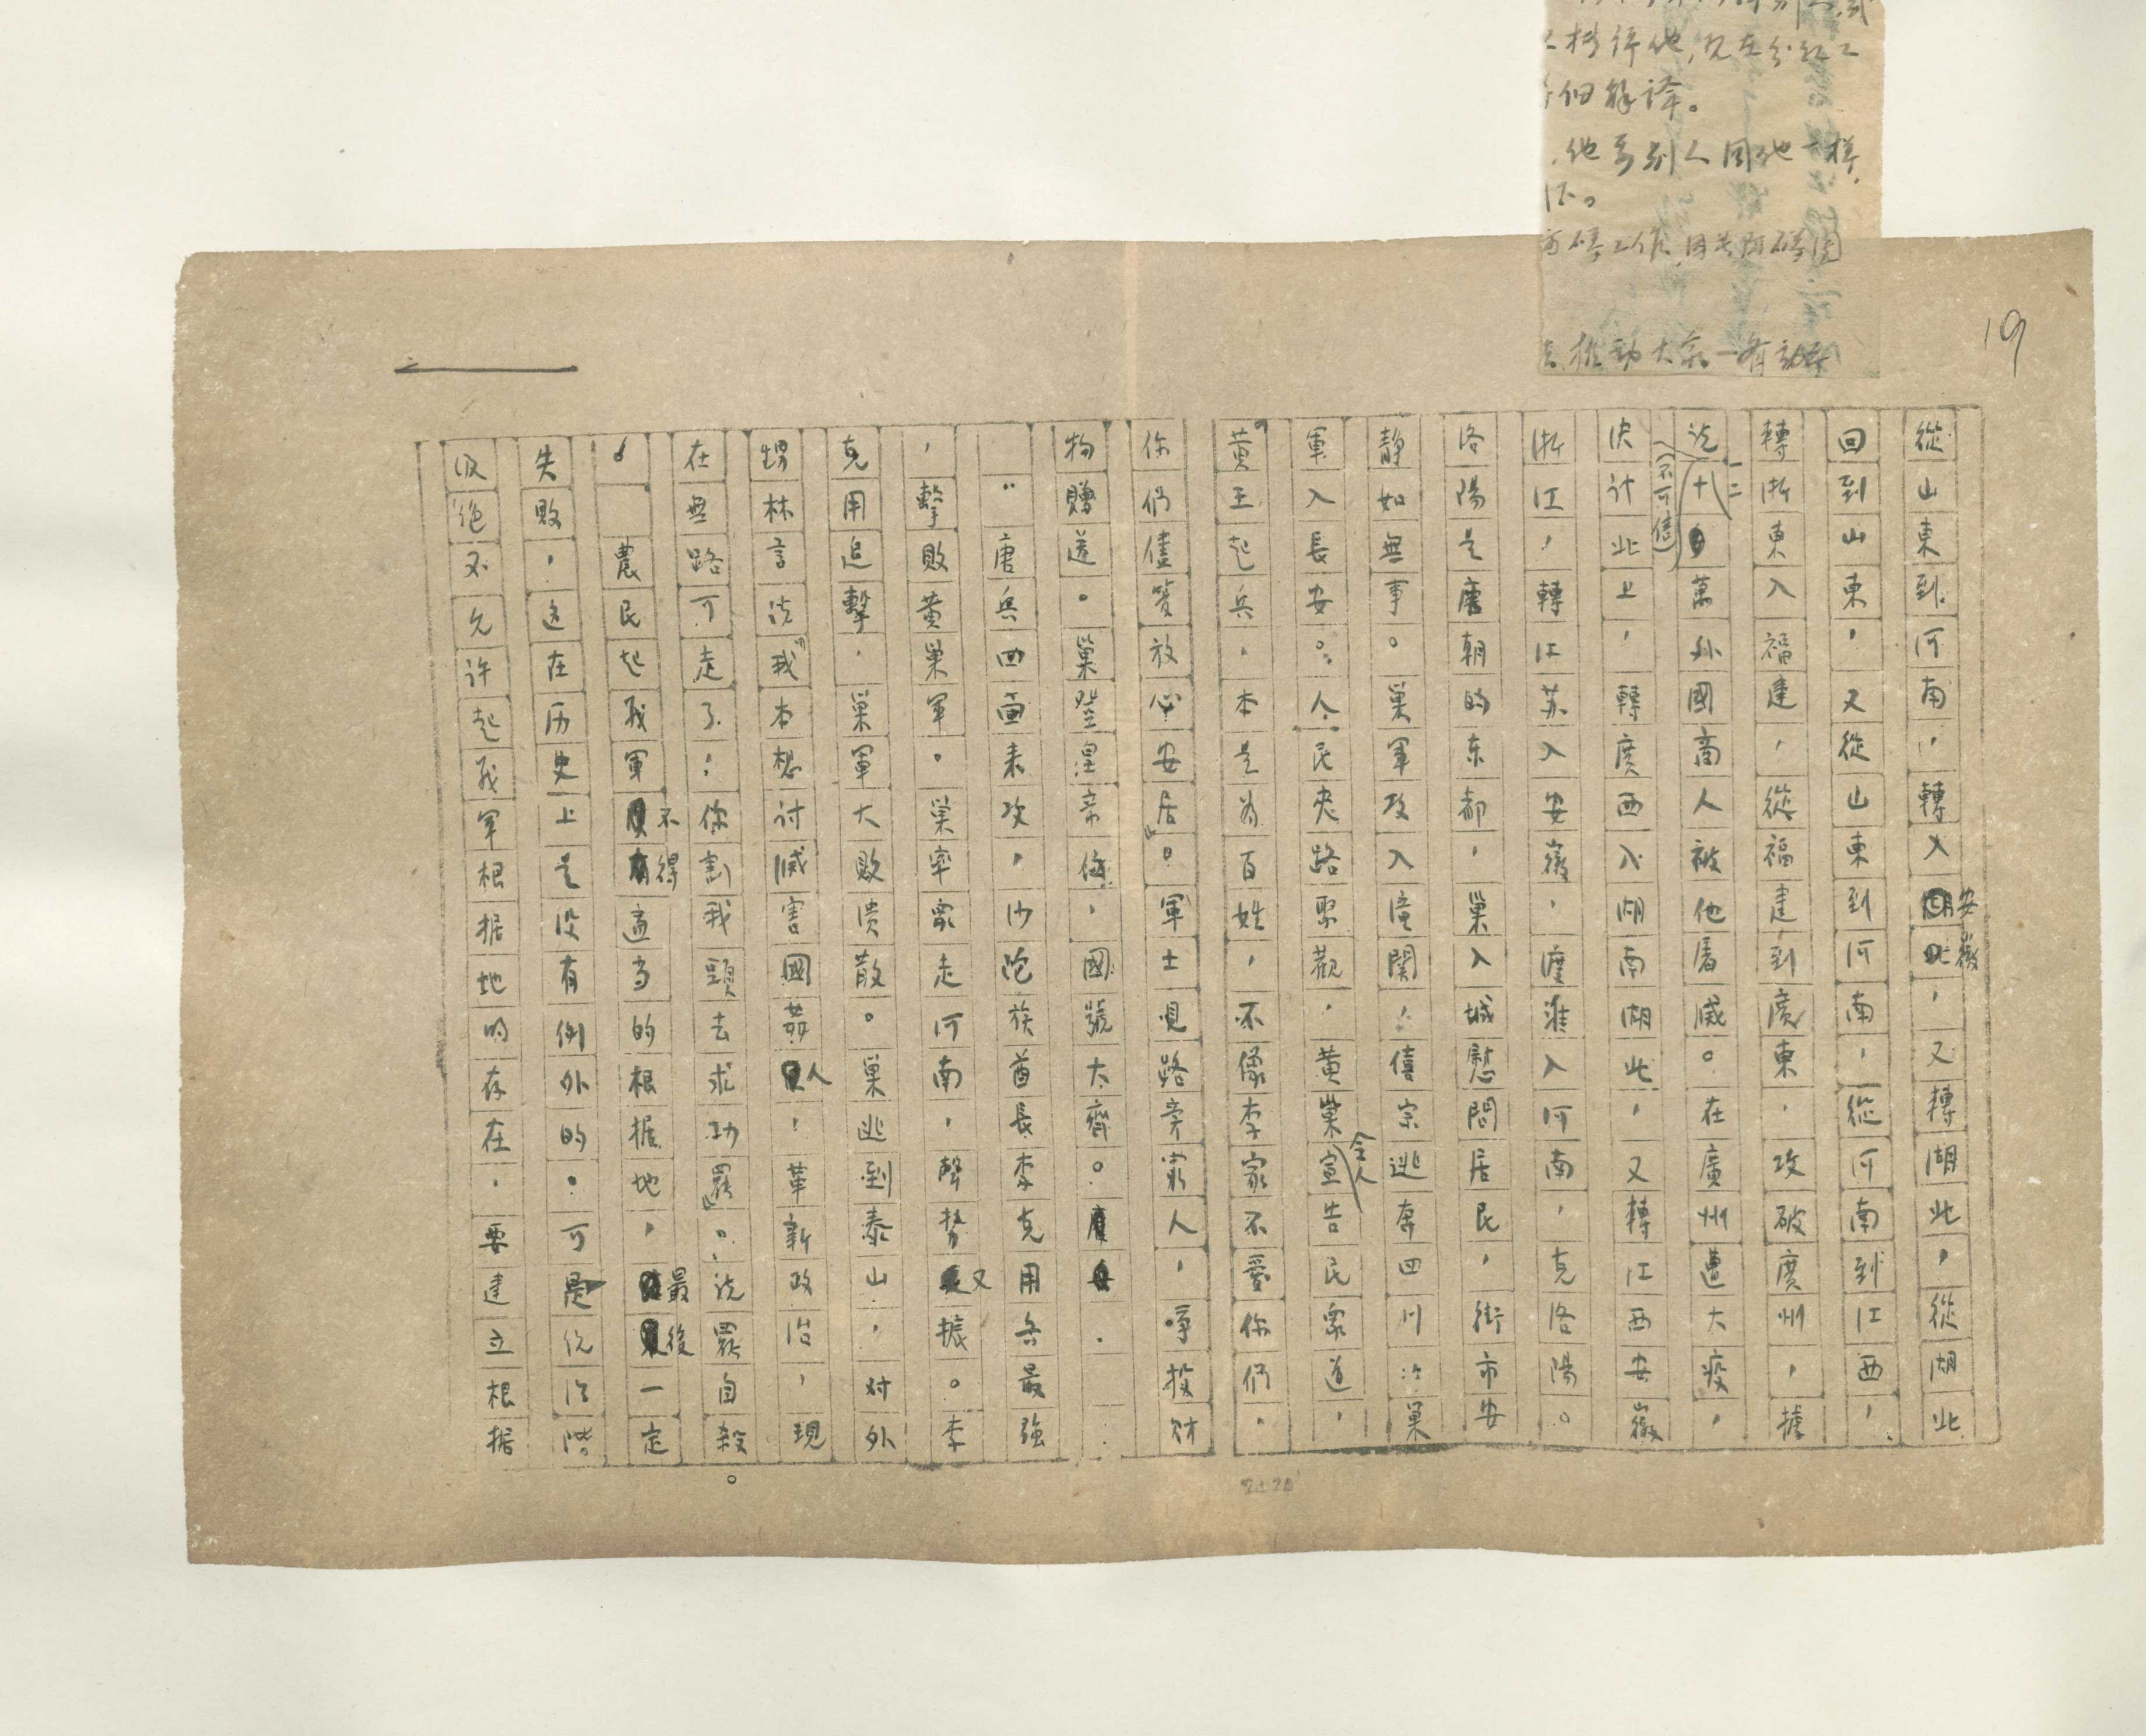 又杉评他,
仔细解译。
他要别人同他一样,
去推动大众。
19
二
從山東到河南，轉入安徽，又轉湖北，從湖北
回到山東，又從山東到河南，從河南到江西，
轉浙東入福建，從福建到廣東，攻破廣州，據
說十二萬外國商人被他屠滅。在廣州遭大疫，
（不可信）
決計北上，轉廣西入湖南湖北，又轉江西安徽
浙江，轉江苏入安徽，渡淮入河南，克洛陽。
洛陽是唐朝的东都，巢入城慰問居民，街市安
靜如無事。巢軍攻入潼關，僖宗逃奔四川。巢
軍入長安。人民夾路聚觀，黃巢令人宣告民眾道，
『黃王起兵，本是为百姓，不像李家不愛你們，
你們儘管放心安居』。軍士見路旁窮人，爭投財
物贈送。巢登皇帝位，國號大齊。
唐兵四面来攻，沙陀族酋長李克用兵最強
，擊敗黃巢軍。巢率眾走河南，聲勢又振。李
克用追擊，巢軍大敗潰散。巢逃到泰山，对外
甥林言说『我本想討滅害國奸人，革新政治，現
在無路可走了，你割我頭去求功罷』。说罷自殺。
。農民起義軍不得適当的根据地，最後一定
失败，这在历史上是没有例外的。可是统治階
级絕不允許起義军根据地的存在，要建立根据